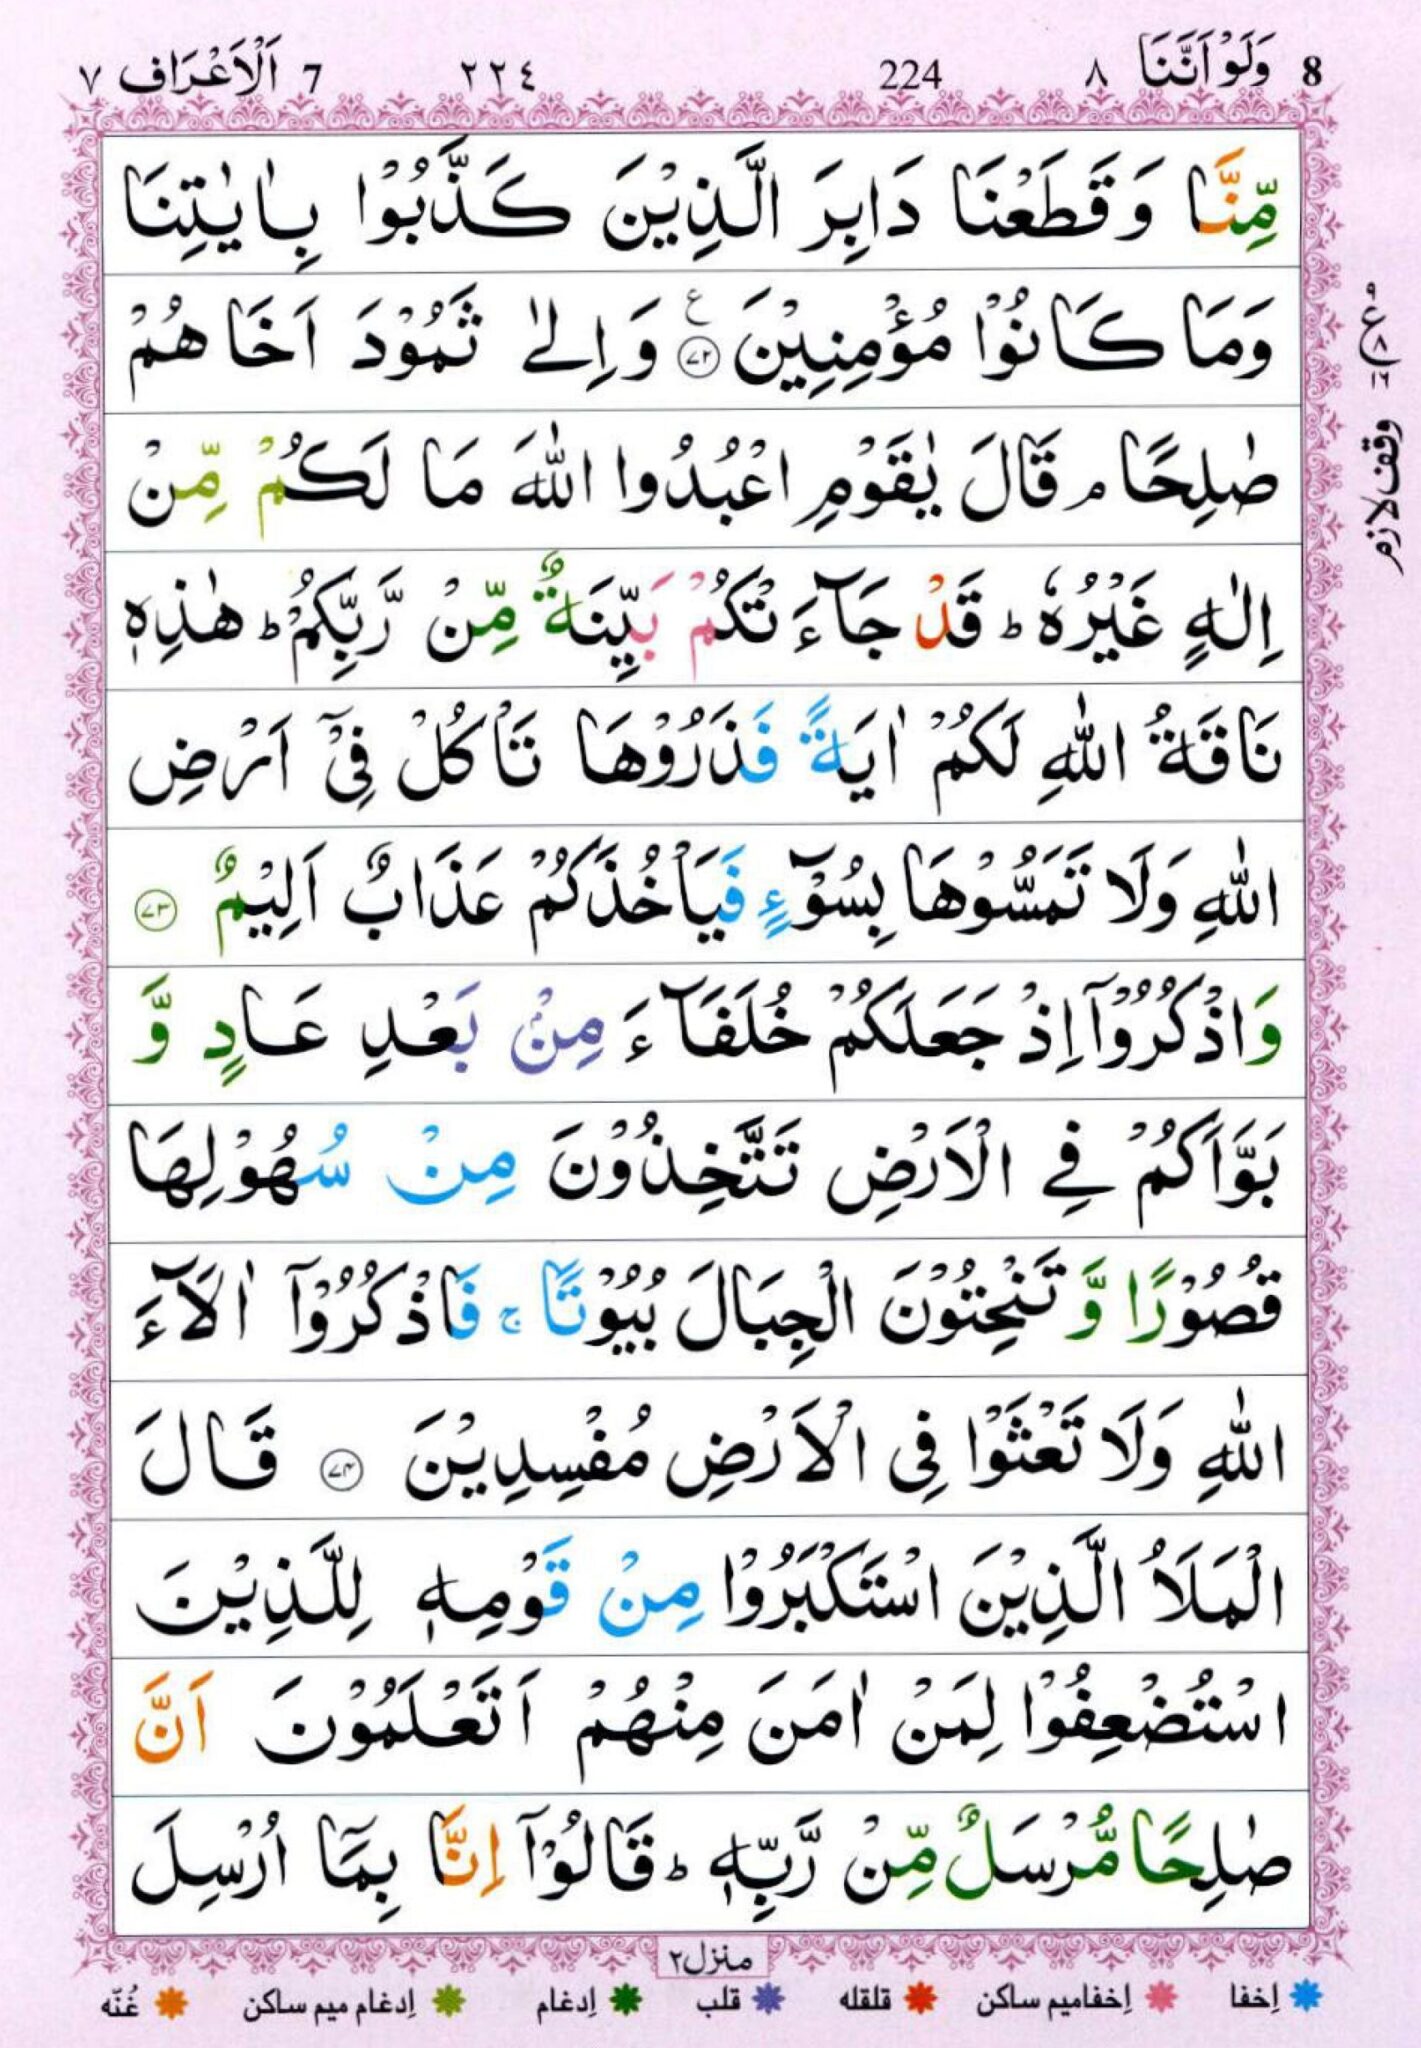 8 وَلَوْ اَنَّنَا ٨ 224 ٢٢٤ 7 اَلْاَعْرَاف ٧
مِّنَّا وَقَطَعْنَا دَابِرَ الَّذِيْنَ كَذَّبُوْا بِاٰيٰتِنَا
وَمَا كَانُوْا مُؤْمِنِيْنَ ﴿۷۲﴾ ع وَاِلٰى ثَمُوْدَ اَخَاهُمْ
صٰلِحًا ۘ قَالَ يٰقَوْمِ اعْبُدُوا اللّٰهَ مَا لَكُمْ مِّنْ
اِلٰهٍ غَيْرُهٗ ؕ قَدْ جَآءَتْكُمْ بَيِّنَةٌ مِّنْ رَّبِّكُمْ ؕ هٰذِهٖ
نَاقَةُ اللّٰهِ لَكُمْ اٰيَةً فَذَرُوْهَا تَاْكُلْ فِيْۤ اَرْضِ
اللّٰهِ وَلَا تَمَسُّوْهَا بِسُوْٓءٍ فَيَاْخُذَكُمْ عَذَابٌ اَلِيْمٌ ﴿۷۳﴾
وَاذْكُرُوْۤا اِذْ جَعَلَكُمْ خُلَفَآءَ مِنْۢ بَعْدِ عَادٍ وَّ
بَوَّاَكُمْ فِى الْاَرْضِ تَتَّخِذُوْنَ مِنْ سُهُوْلِهَا
قُصُوْرًا وَّ تَنْحِتُوْنَ الْجِبَالَ بُيُوْتًا ۚ فَاذْكُرُوْۤا اٰلَآءَ
اللّٰهِ وَلَا تَعْثَوْا فِى الْاَرْضِ مُفْسِدِيْنَ ﴿۷۴﴾ قَالَ
الْمَلَاُ الَّذِيْنَ اسْتَكْبَرُوْا مِنْ قَوْمِهٖ لِلَّذِيْنَ
اسْتُضْعِفُوْا لِمَنْ اٰمَنَ مِنْهُمْ اَتَعْلَمُوْنَ اَنَّ
صٰلِحًا مُّرْسَلٌ مِّنْ رَّبِّهٖ ؕ قَالُوْۤا اِنَّا بِمَاۤ اُرْسِلَ
وقف لازم
منزل٢
اِخفا اِخفامیم ساکن قلقله قلب اِدغام اِدغام میم ساکن غُنّه